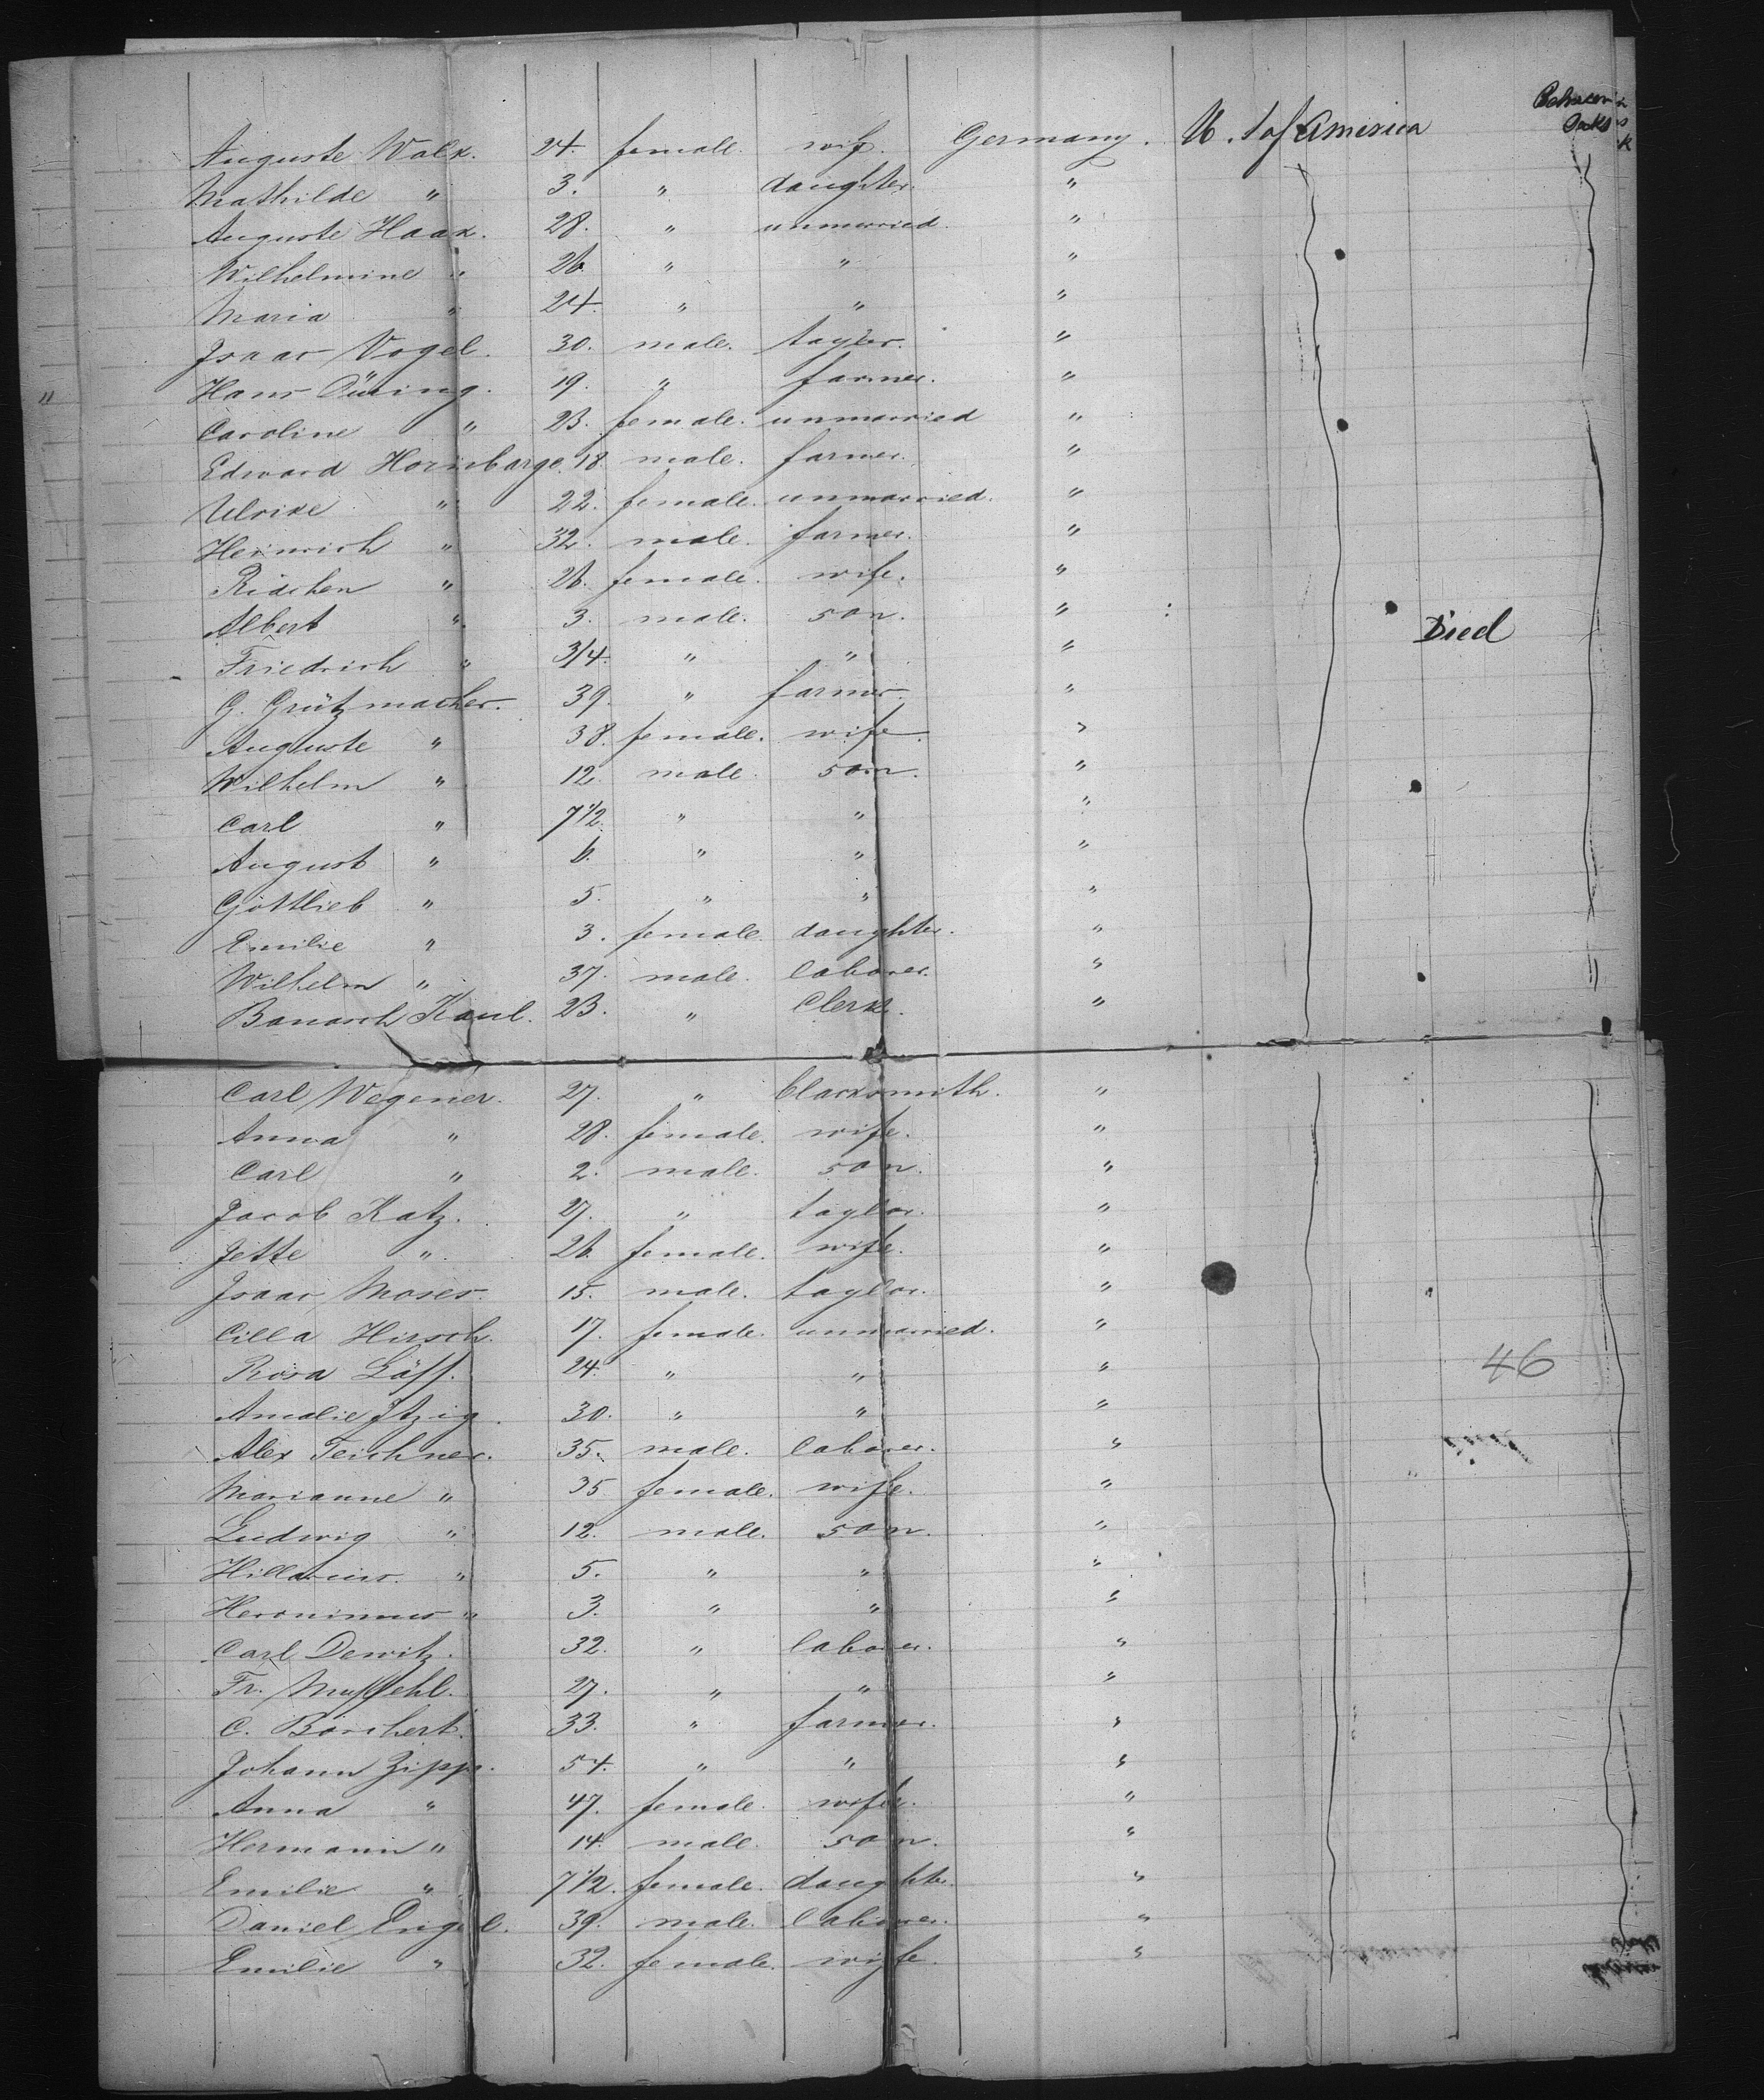 Auguste Walk. 24. female. wife. Germany. U. S. of America Between Decks
Mathilde " 3. " daughter. "
Auguste Haak. 28. " unmarried. "
Wilhelmine " 26. " " "
Maria " 24. " " "
Isaac Vogel. 30. male. taylor. "
Hans Düring. 19. " farmer. "
Caroline " 23. female. unmarried "
Edward Hornbarge. 18. male. farmer. "
Ulrike " 22. female. unmarried. "
Heinrich " 32. male. farmer. "
Rieschen " 26. female. wife. "
Albert " 3. male. son. " Died
Friedrich " 3/4. " " "
G. Grützmacher. 39. " farmer. "
Auguste " 38. female. wife. "
Wilhelm " 12. male. son. "
Carl " 7 1/2. " " "
August " 6. " " "
Gottlieb " 5. " " "
Emilie " 3. female. daughter. "
Wilhelm " 37. male. laborer. "
Barasch Kaul. 23. " Clerk. "
Carl Wegener. 27. " blacksmith. "
Anna " 28. female. wife. "
Carl " 2. male. son. "
Jacob Katz. 27. " taylor. "
Jette " 26. female. wife. "
Isaac Moses. 15. male. taylor. "
Cilla Hirsch. 17. female. unmarried. "
Rosa Läff. 24. " " " 46
Amalie Itzig. 30. " " "
Alex Teichner. 35. male. laborer. "
Marianne " 35 female. wife. "
Ludwig " 12. male. son. "
Hillarius. " 5. " " "
Heronimus " 3. " " "
Carl Dewitz. 32. " laborer. "
Fr. Muffehl. 27. " " "
C. Borchert. 33. " farmer. "
Johann Zipp. 54. " " "
Anna " 47. female. wife. "
Hermann " 14. male. son. "
Emilie " 7 1/2. female. daughter. "
Daniel Engel. 39. male. laborer. "
Emilie " 32. female. wife. "